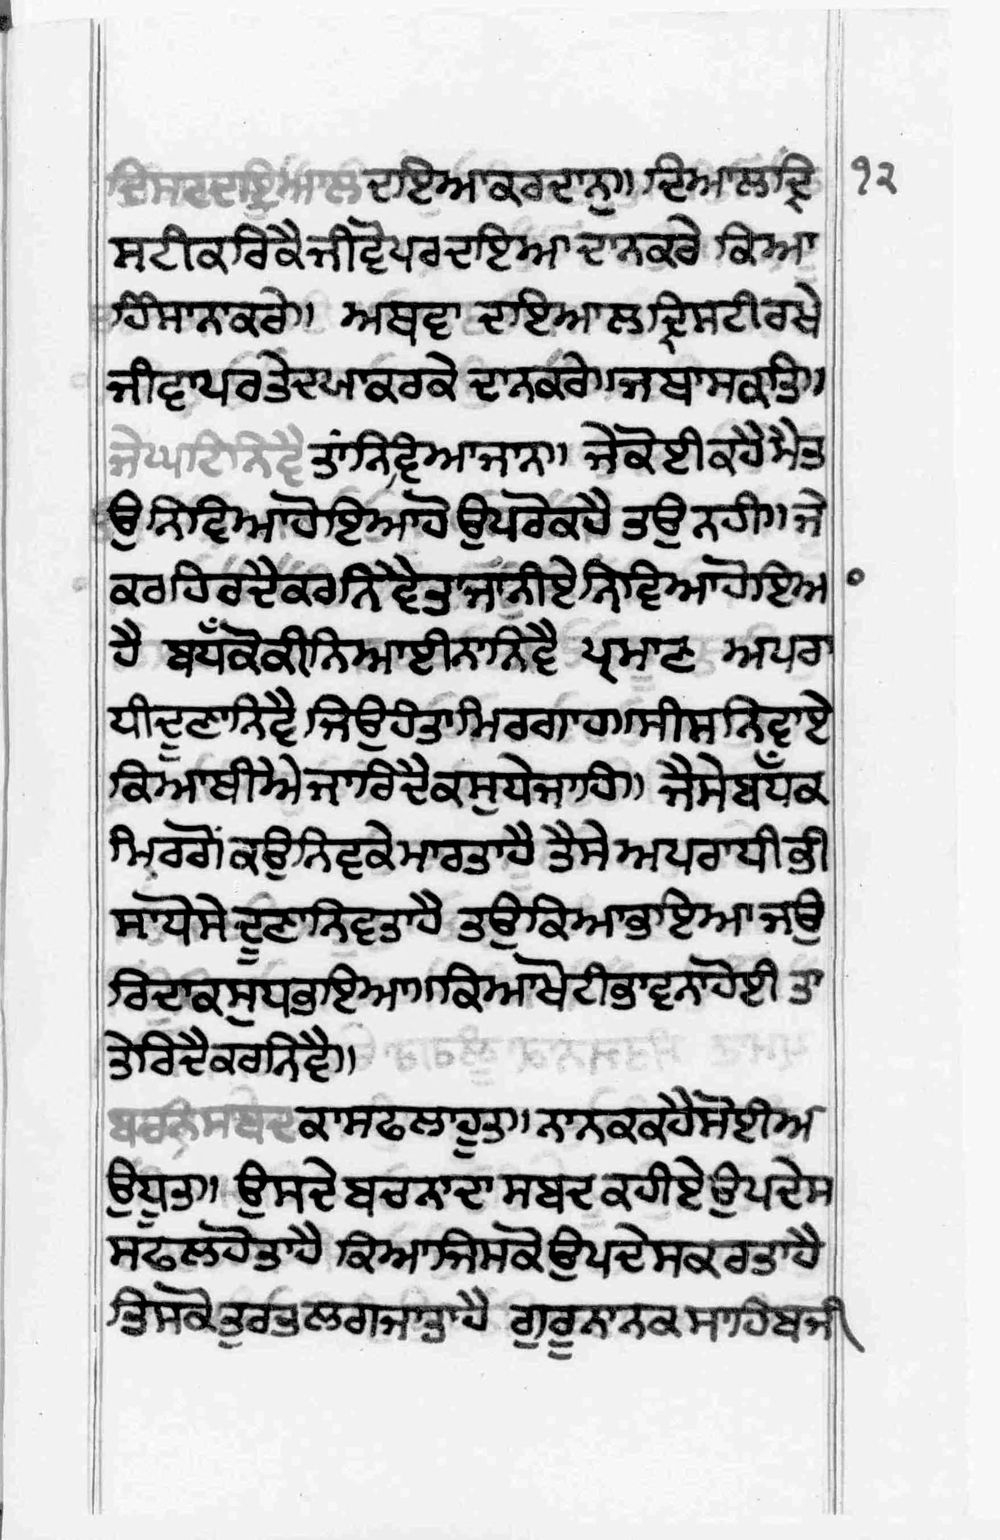 ਦ੍ਰਿਸਟਦਇਆਲ ਦਇਆਕਰਦਾਨੁ॥ ਦਿਆਲਦ੍ਰਿ ੧੨
ਸਟੀਕਰਿਕੈਜੀਵੋਪਰਦਇਆ ਦਾਨਕਰੇ ਕਿਆ
ਹਿੰਸਾਨਾਕਰੇ॥ ਅਥਵਾ ਦਇਆਲਦ੍ਰਿਸਟੀਰਖੇ
ਜੀਵਾਪਰਤੇਦਯਾਕਰਕੇ ਦਾਨਕਰੇ॥ਜਥਾਸਕਤਿ॥
ਜੇਘਟਿਨਿਵੈ ਤਾਂਨਿਵਿਆਜਾਨ॥ ਜੇਕੋਈਕਹੈਮੈਤ
ਉਨਿਵਿਆਹੋਇਆਹੋ ਉਪਰੋਕਹੈ ਤਉਨਹੀ॥ਜੇ
ਕਰਹਿਰਦੈਕਰਨਿਵੈਤਾਜਾਨੀਏਨਿਵਿਆਹੋਇਆ
ਹੈ ਬਧਿਕੋਕੀਨਿਆਈਨਾਨਿਵੈ ਪ੍ਰਮਾਣ ਅਪਰਾ
ਧੀਦੂਣਾਨਿਵੈ ਜਿਉਹੰਤਾਮਿਰਗਾਹ॥ਸੀਸਨਿਵਾਏ
ਕਿਆਥੀਐਜਾਰਿਦੈਕਸੁਧੇਜਾਹਿ॥ ਜੈਸੇਬਧਿਕ
ਮਿਰਗੋਂਕਉਨਿਵਕੇਮਾਰਤਾਹੈ ਤੈਸੇਅਪਰਾਧੀਭੀ
ਸਾਧੋਸੇਦੂਣਾਨਿਵਤਾਹੈ ਤਉਕਿਆਭਾਇਆਜਉ
ਰਿਦਾਕਸੁਧਭਇਆ॥ਕਿਆਖੋਟੀਭਾਵਨਾਹੋਈ ਤਾ
ਤੇਰਿਦੈਕਰਨਿਵੈ॥
ਬਚਨਿਸਬਦ ਕਾਸਫਲਾਹੂਤਾ॥ਨਾਨਕਕਹੈਸੋਈਅ
ਉਧੂਤ॥ ਉਸਦੇਬਚਨਾਦਾ ਸਬਦਕਹੀਏਉਪਦੇਸ
ਸਫਲਹੋਤਾਹੈ ਕਿਆਜਿਸਕੋਉਪਦੇਸਕਰਤਾਹੈ
ਤਿਸਕੋਤੁਰਤਲਗਜਾਤਾਹੈ ਗੁਰੂਨਾਨਕਸਾਹਿਬਜੀ